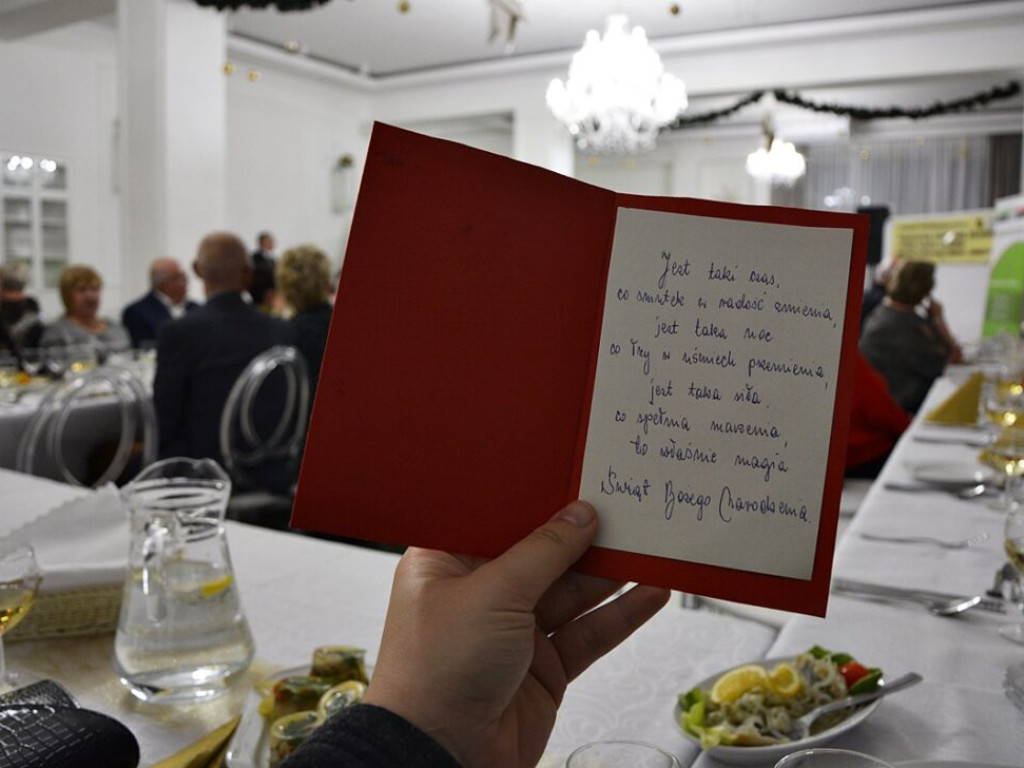 Jest taki czas,
co smutek w radość zmienia,
jest taka noc
co łzy w uśmiech przemienia,
jest taka siła
co spełnia marzenia,
to właśnie magia
Świąt Bożego Narodzenia.